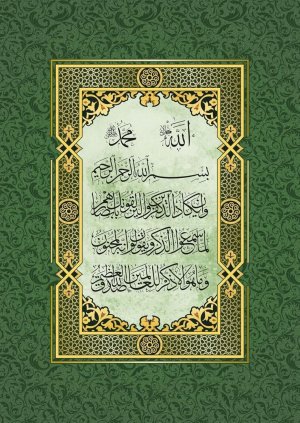 الله محمد
بسم الله الرحمن الرحيم
وان يكاد الذين كفروا ليزلقونك بابصارهم
لما سمعوا الذكر ويقولون انه لمجنون
وما هو الا ذكر للعالمين صدق الله العظيم